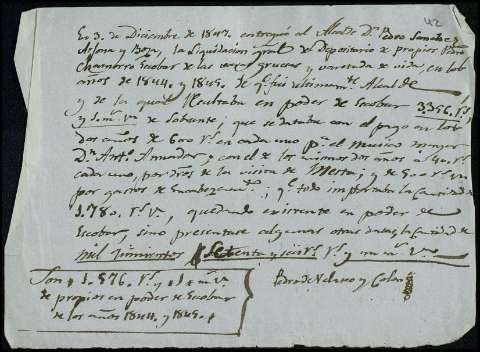 42
En 3. de Diciembre de 1847. entregué al Alcalde Dn. Pedro Sanchez
Arjona y Boza, la Liquidacion gral. de Depositario de propios Pedro
Chamorro Escobar de las yervas gruesas y varenda de vida, en los
años de 1844. y 1845. de q. fué Alcalde
y de la qual Resultaba en poder de Escobar 3.356. rs.
y 1. mrs. vn. de Sobrante; que se databa con el pago en los
dos años de 600 rs. en cada uno pa. el musico mayor
Dn. Anto. Amador; y con el de los mismos dos años a 40. rs.
cada uno, por dros. de la visita de Mesta; y de 500 rs. vn.
por gastos de ; q. todo importaba la Cantidad de
1.780. rs. vn., quedando existente en poder de
Escobar, sino presentase algunas otras datas, la Cantidad de
mil quinientos setenta y seis rs. y un mrs. vn.
Son 1.576. rs. y 1 mrs. vn.
de propios en poder de Escobar
de los años 1844. y 1845.
Pedro de Velasco y Colas